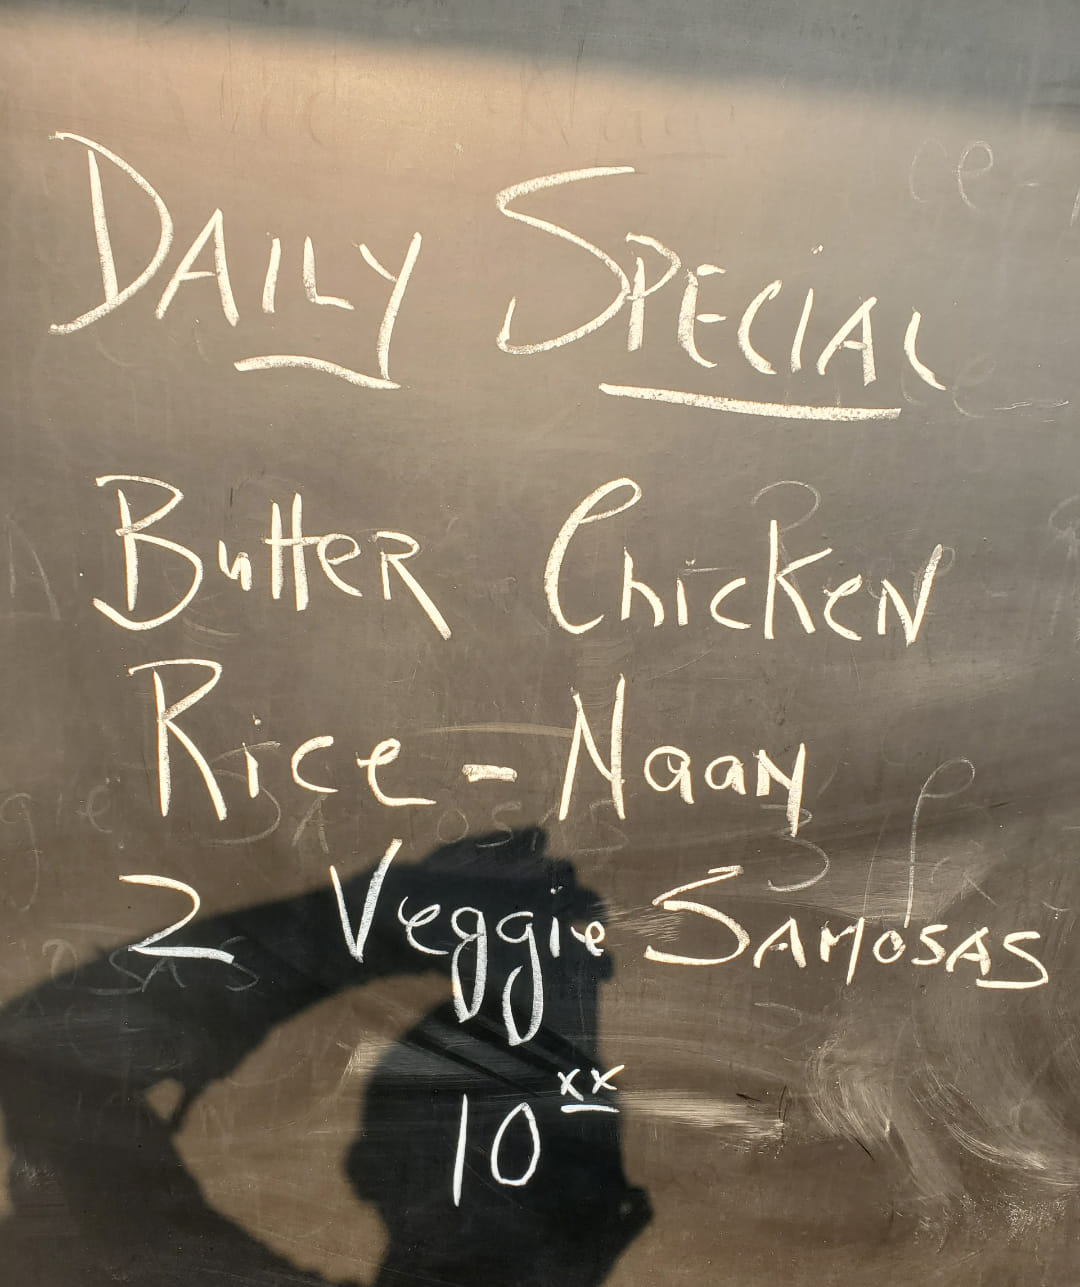 DAILY SPECIAL
Butter Chicken
Rice - Naan
2 Veggie SAMOSAS
10 xx